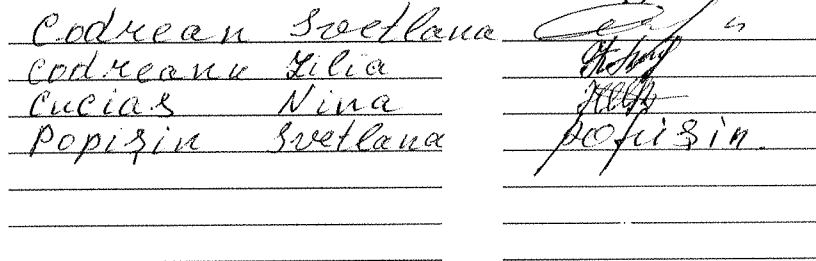 Codrean Svetlana
Codreanu Lilia
Cucias Nina
Popișin Svetlana popișin.